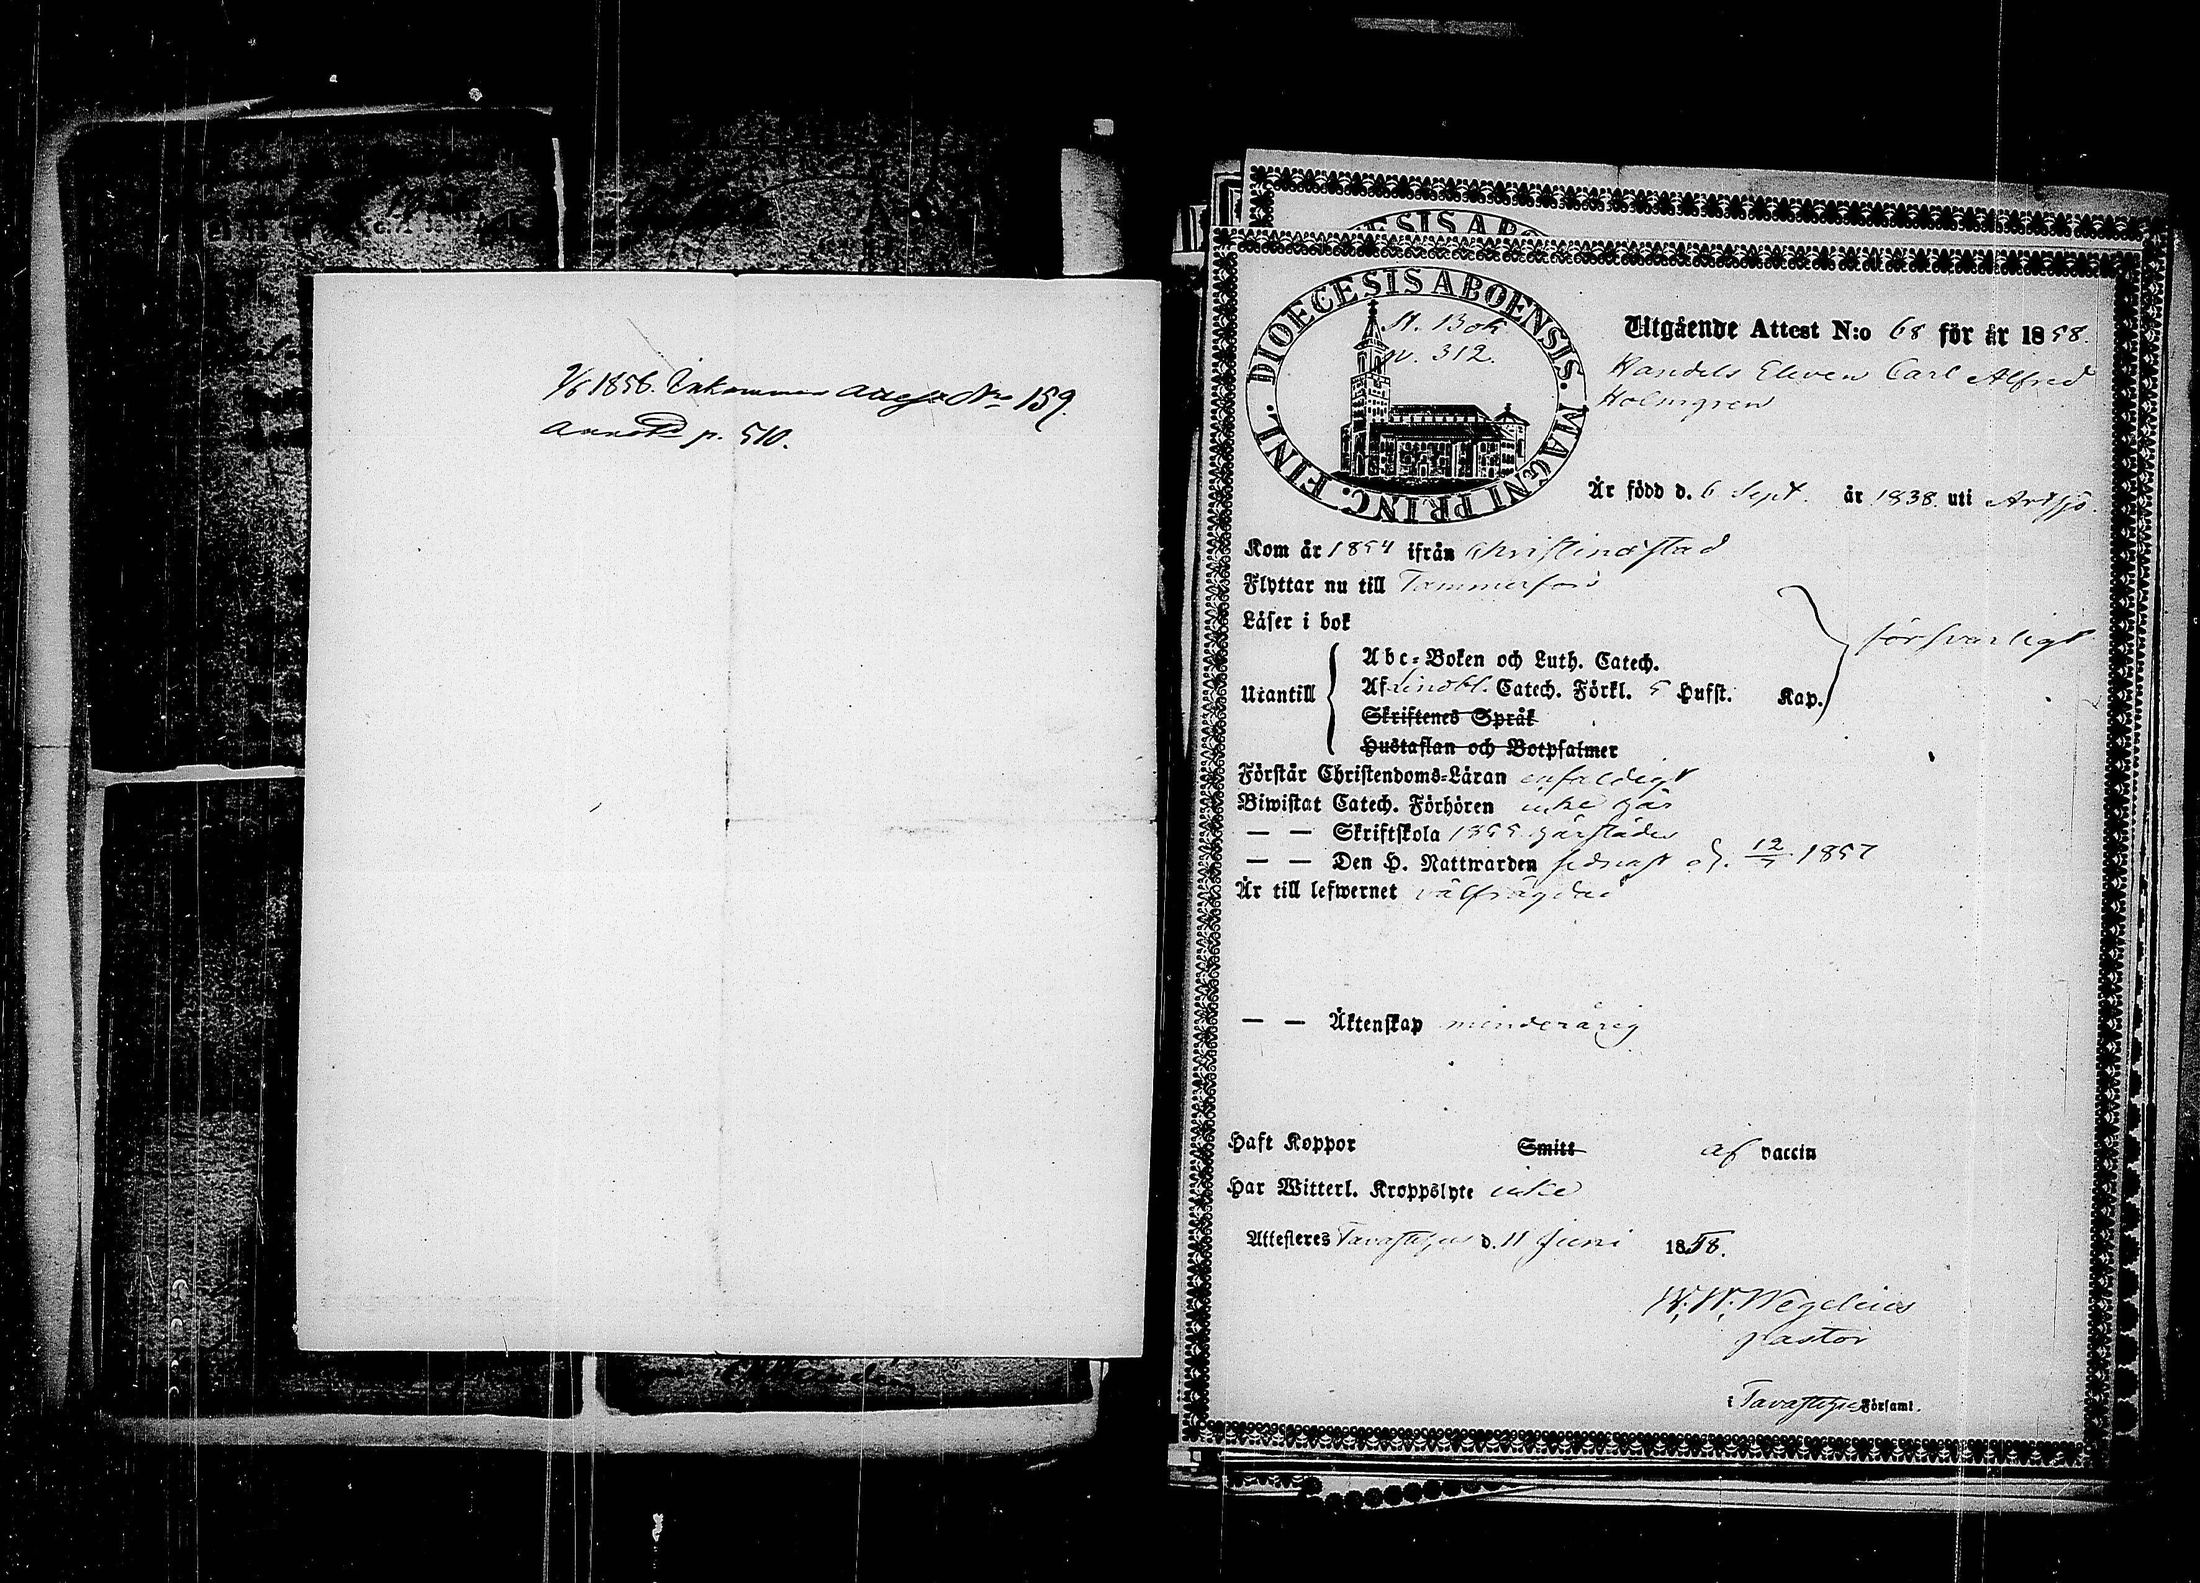 9/6 1856. Inkommen Attest No 159.
p. 510.
DIOECESIS ABOENSIS. MAGNI PRINC. FINL.
St. Bok
p. 312.
Utgående Attest N:o 68 för år 1858.
Handels Eleven Carl Alfred
Holmgren
Är född d. 6 Sept. år 1838. uti Artsjö.
Kom år 1854 ifrån Christinæstad
Flyttar nu till Tammerfors
Läser i bok
försvarligt
Abc-Boken och Luth. Catech.
Utantill Af Lindbl. Catech. Förkl. 5 Hufst. Kap.
Skriftenes Språk
Hustaflan och Botpsalmer
Förstår Christendoms-Läran enfaldigt
Biwistat Catech. Förhören icke här
— — Skriftskola 1855 härstädes
— — Den H. Nattwarden sednast d. 12/7 1857
Är till lefwernet välfrägdad
— — Äktenskap minderårig
Haft Koppor Smitt af vaccin
Har Witterl. Kroppslyte icke
Attesteres Tavastehus d. 11 Juni 1858.
W. W. Wegelius
pastor
i Tavastehus Församl.